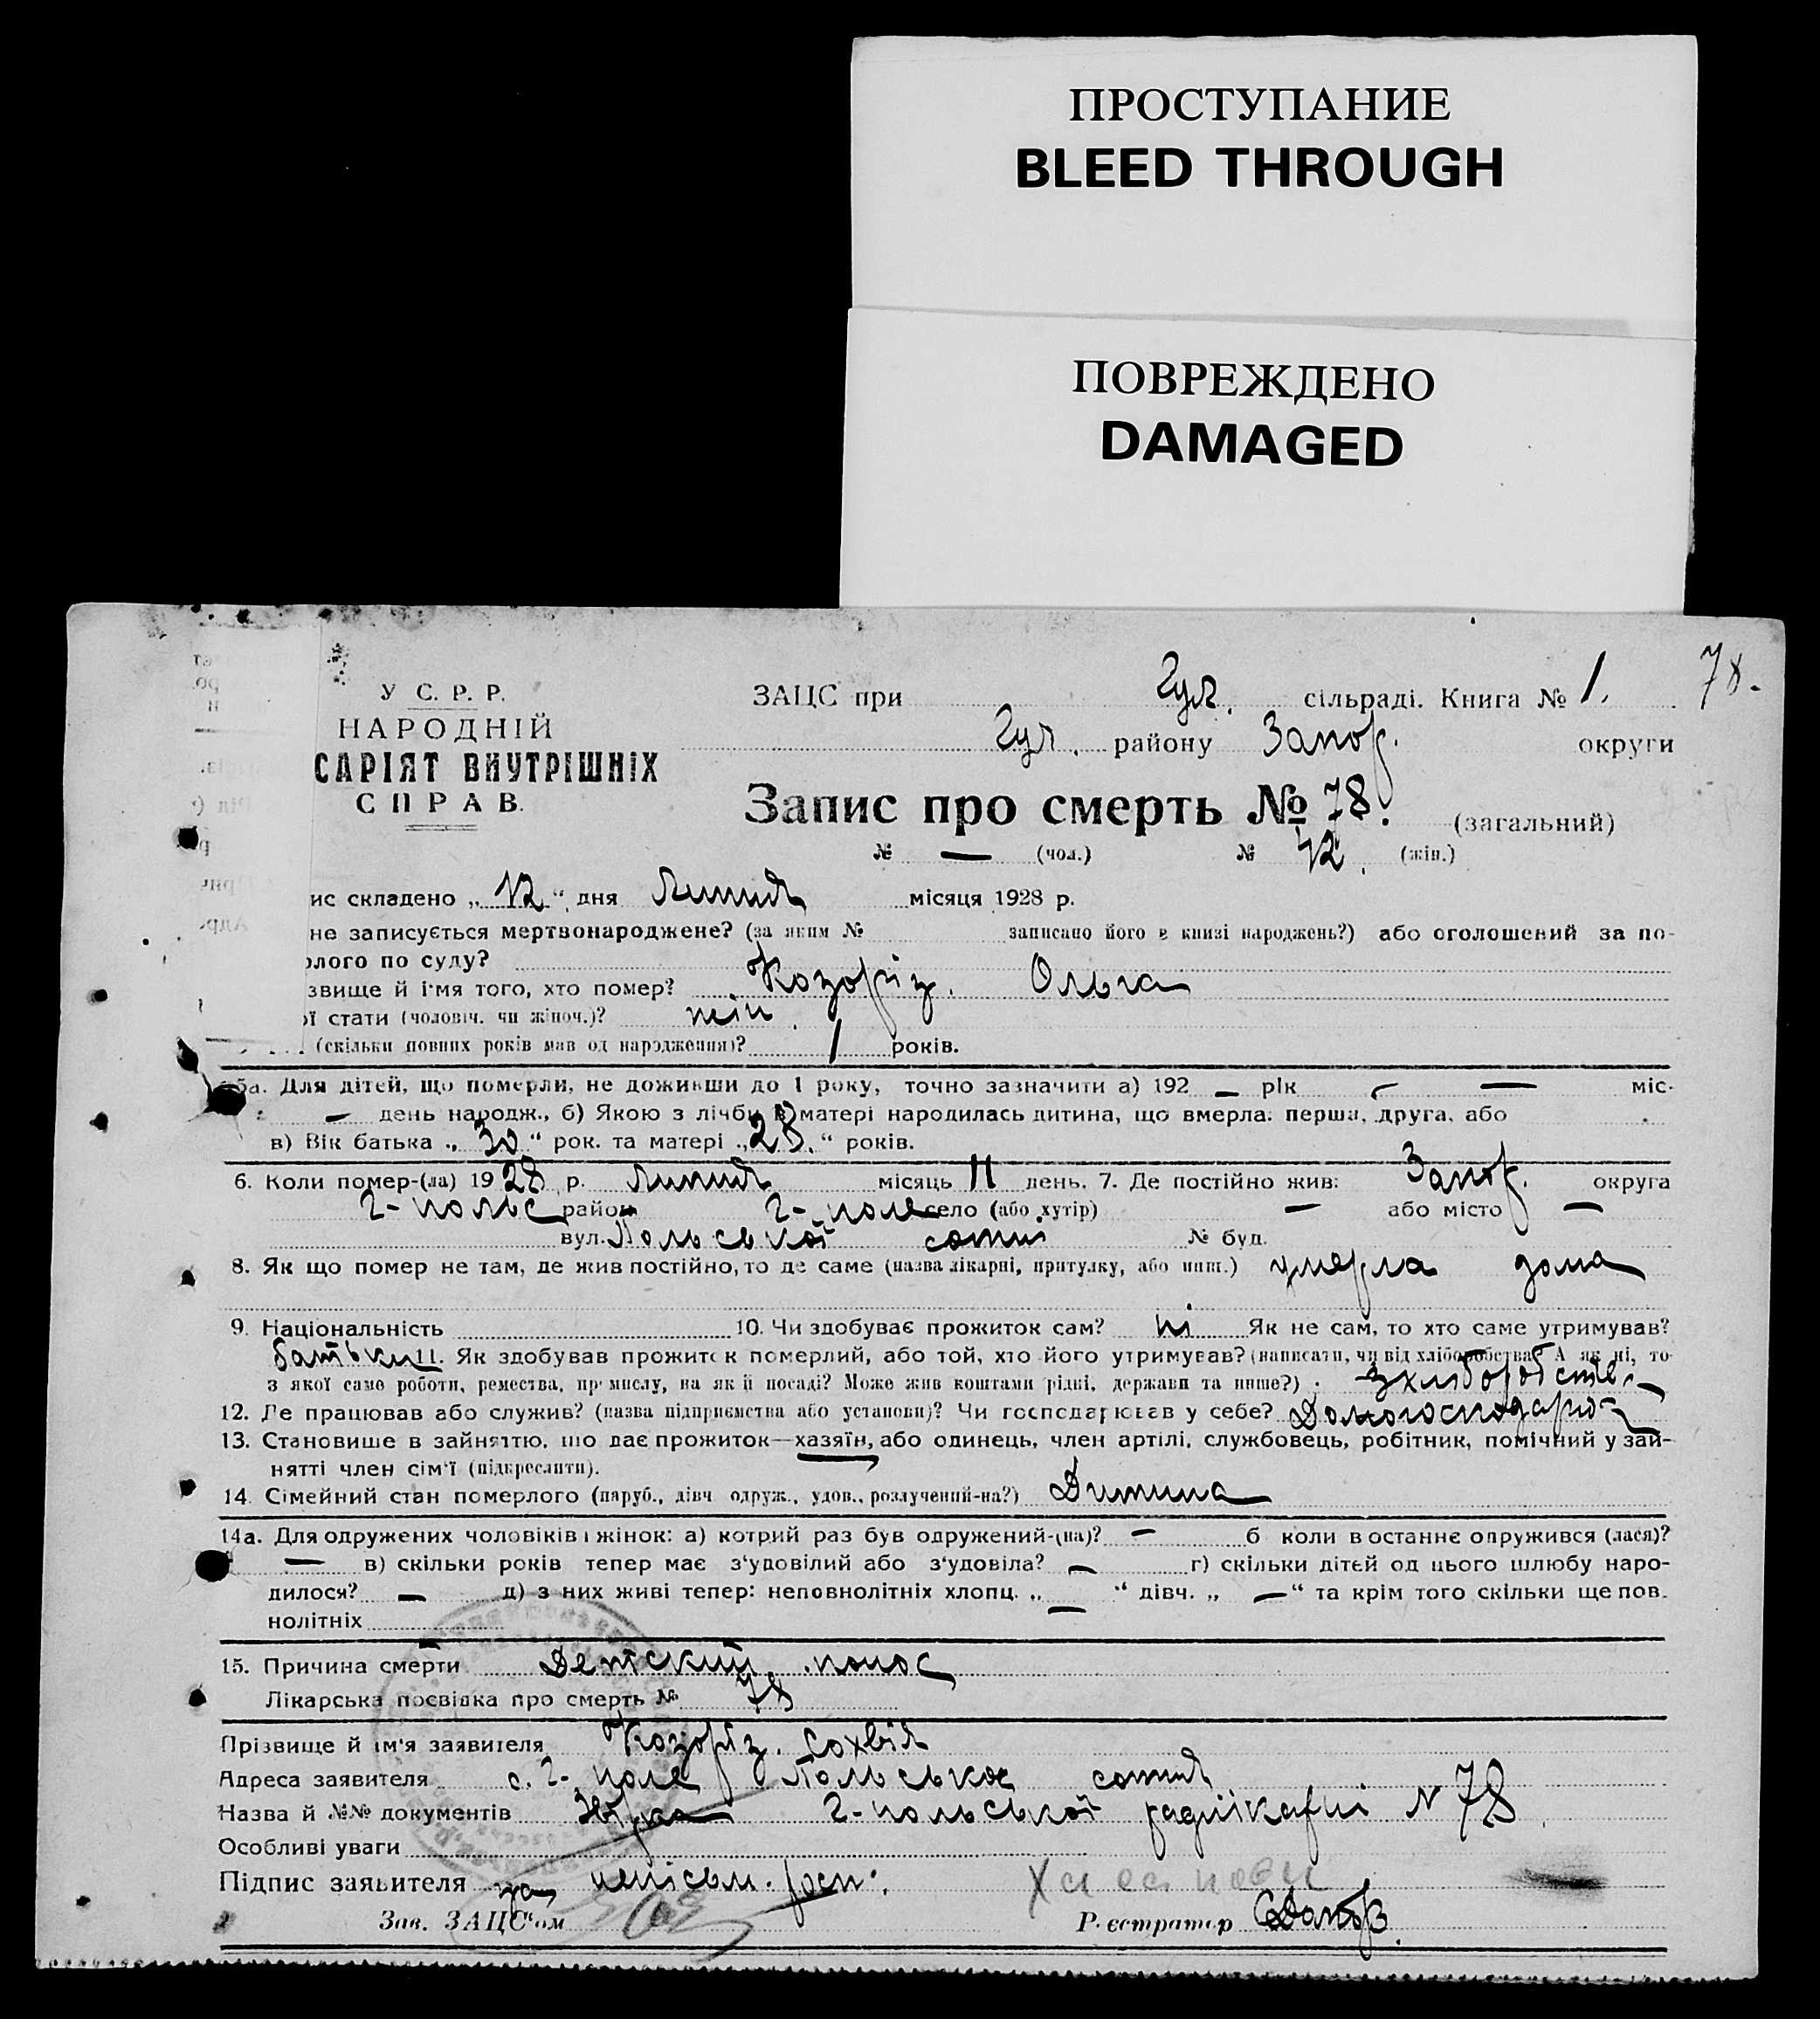 ПРОСТУПАНИЕ
BLEED THROUGH
ПОВРЕЖДЕНО
DAMAGED
78.
У С. Р. Р.
НАРОДНІЙ
САРІЯТ ВНУТРІШНІХ
СПРАВ.
ЗАЦС при Гул. сільраді. Книга № 1.
Гул. району Запор. округи
Запис про смерть № 78. (загальний)
№ — (чол.) № 42. (жін.)
ис складено „12“ дня Липня місяця 1928 р.
не записується мертвонароджене? (за яким № записано його в книзі народжень?) або оголошений за по-
рлого по суду?
звище й ім'я того, хто помер? Козоріз. Ольга
ої стати (чоловіч. чи жіноч.)? жін.
(скільки повних років мав од народження)? 1 років.
5а. Для дітей, що померли, не доживши до 1 року, точно зазначити а) 192 — рік — — міс-
— день народж., б) Якою з лічби в матері народилась дитина, що вмерла: перша, друга, або
в) Вік батька „30“ рок. та матері „28.“ років.
6. Коли помер-(ла) 1928 р. Липня місяць 11 день. 7. Де постійно жив: Запор. округа
Г-польс район Г-поле село (або хутір) — або місто —
вул. Польської сотні № буд.
8. Як що помер не там, де жив постійно, то де саме (назва лікарні, притулку, або инш.) умерла дома
9. Національність 10. Чи здобуває прожиток сам? ні Як не сам, то хто саме утримував?
батьки 11. Як здобував прожиток померлий, або той, хто його утримував? (написати, чи від хліборобства? А як ні, то
з якої саме роботи, ремества, промислу, на якій посаді? Може жив коштами рідні, держави та инше?) з хліборобств.
12. Де працював або служив? (назва підприємства або установи)? Чи господарював у себе? Домогосподарює
13. Становище в зайняттю, що дає прожиток—хазяїн, або одинець, член артілі, службовець, робітник, помічний у зай-
нятті член сім'ї (підкреслити).
14. Сімейний стан померлого (паруб., дівч. одруж., удов., розлучений-на?) Дитина
14а. Для одружених чоловіків і жінок: а) котрий раз був одружений-(на)? — б коли востаннє одружився (лася)?
— в) скільки років тепер має з'удовілий або з'удовіла? — г) скільки дітей од цього шлюбу наро-
дилося? — д) з них живі тепер: неповнолітніх хлопц. „ — “ дівч. „ — “ та крім того скільки ще пов.
нолітніх —
15. Причина смерти Детский понос
Лікарська посвідка про смерть № 78
Прізвище й ім'я заявителя Козоріз. Сохвія
Адреса заявителя с. Г-поле Польська сотня
Назва й №№ документів Г-польської № 78
Особливі уваги
Підпис заявителя за непісьм. росп.
Зав. ЗАЦС'ом Реєстратор